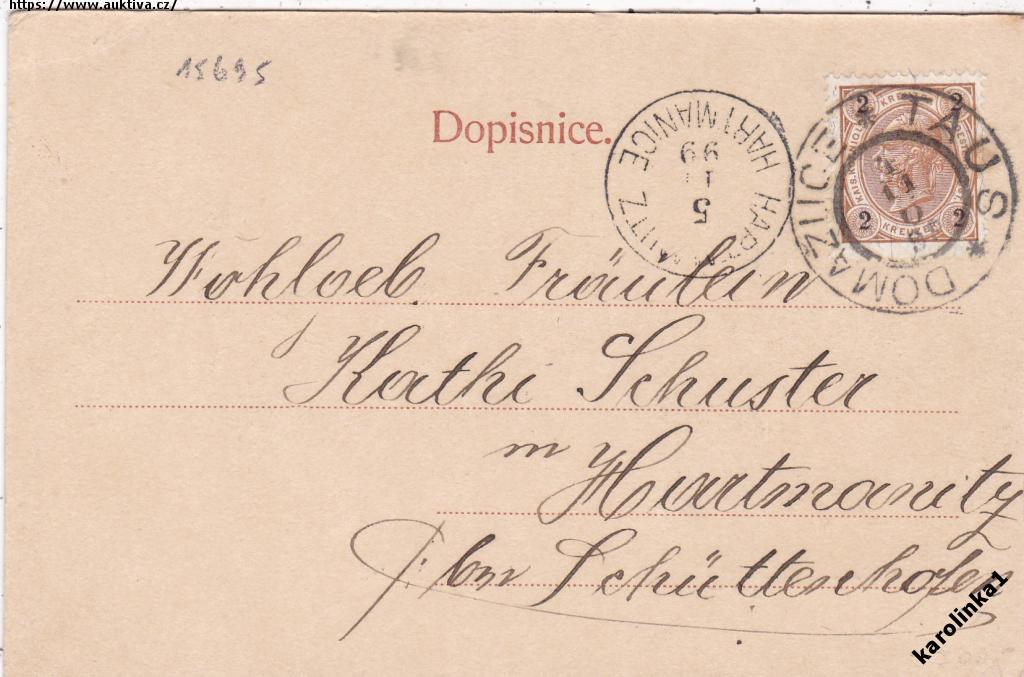 https://www.auktiva.cz/
15695
Dopisnice.
HARTMANITZ HARTMANICE
5
11
99
TAUS * DOMAŽLICE *
2 2
2 2
KREUZER
Wohlgeb. Fräulein
Kathi Schuster
in Hartmanitz
bei Schüttenhofen
karolinka1